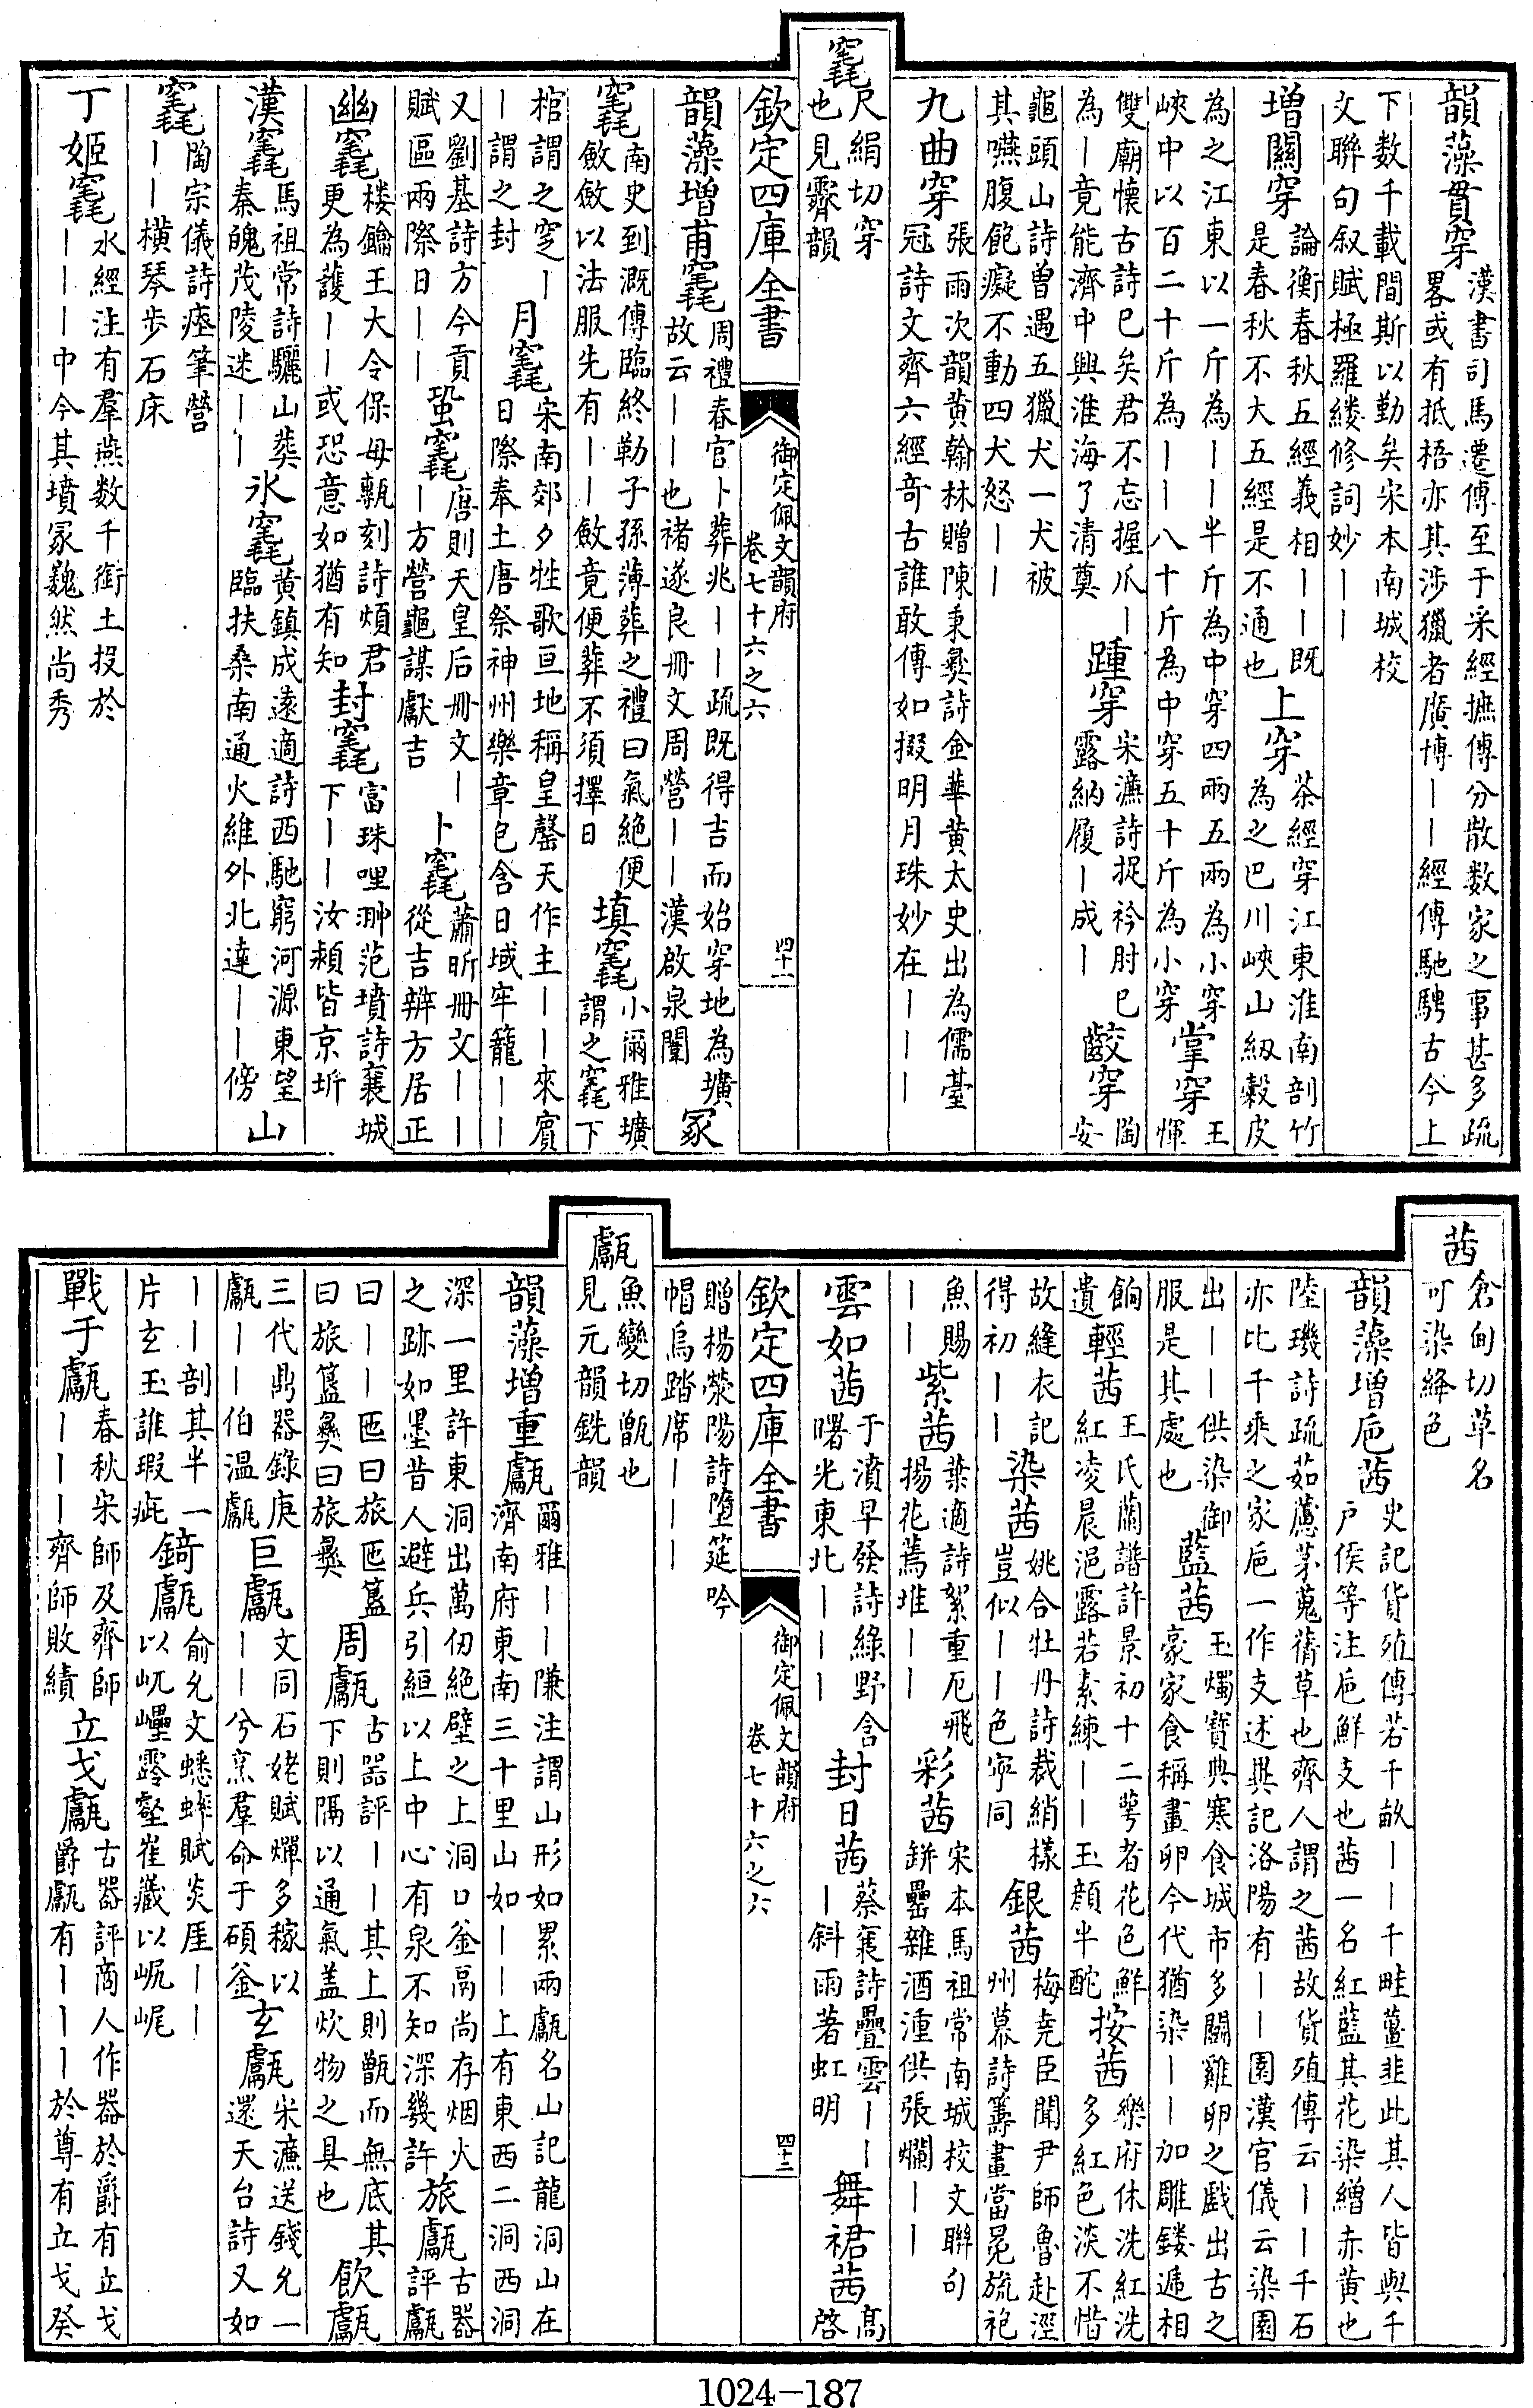 韻藻貫穿漢書司馬遷傳至于采經摭傳分散數家之事甚多疏
畧或有抵梧亦其涉獵者廣博丨丨經傳馳騁古今上
下数千載間斯以勤矣宋本南城校
文聯句叙賦極羅縷修詞妙丨丨
增關穿論衡春秋五經義相丨丨既
是春秋不大五經是不通也上穿茶經穿江東淮南剖竹
為之巴川峽山紉穀皮
為之江東以一斤為丨丨半斤為中穿四兩五兩為小穿
峽中以百二十斤為丨丨八十斤為中穿五十斤為小穿掌穿王
惲
雙廟懷古詩已矣君不忘握爪丨
為丨竟能濟中興淮海了清奠踵穿宋濂詩捉衿肘已
露納履丨成丨齩穿陶
安
龜頭山詩曽遇五獵犬一犬被
其嚥腹飽癡不動四犬怒丨丨
九曲穿張雨次韻黄翰林贈陳秉彝詩金華黄太史出為儒臺
冠詩文齊六經竒古誰敢傳如掇明月珠妙在丨丨丨
竁尺絹切穿
也見霽韻
欽定四庫全書
御定佩文韻府
卷七十六之六
四十一
韻藻增甫竁周禮春官卜葬兆丨丨疏既得吉而始穿地為壙
故云丨丨也禇遂良冊文周營丨丨漢啟泉闈冢
竁南史到溉傳臨終勒子孫薄葬之禮曰氣絶便
斂斂以法服先有丨丨斂竟便葬不須擇日填竁小爾雅壙
謂之竁下
棺謂之窆丨
丨謂之封月竁宋南郊夕牲歌亘地稱皇罄天作主丨丨來賓
日際奉土唐祭神州樂章包含日域牢籠丨丨
又劉基詩方今貢
賦區兩際日丨丨蛩竁唐則天皇后冊文丨
丨方營龜謀獻吉卜竁蕭昕冊文丨丨
從吉辨方居正
幽竁楼鑰王大令保母甎刻詩頰君
更為護丨丨或恐意如猶有知封竁富珠哩翀范墳詩襄城
下丨丨汝頰皆京圻
漢竁馬祖常詩驪山葬
秦魄茂陵迷丨丨氷竁黄鎮成遠適詩西馳窮河源東望
臨扶桑南通火維外北達丨丨傍山
竁陶宗儀詩瘞筆營
丨丨橫琴歩石床
丁姬竁水經注有羣燕数千銜土投於
丨丨丨中今其墳冢巍然尚秀
茜倉甸切草名
可染絳色
韻藻增巵茜史記貨殖傳若千畝丨丨千畦薑韭此其人皆與千
户侯等注巵鮮支也茜一名紅藍其花染繒赤黄也
陸璣詩疏茹藘茅蒐蒨草也齊人謂之茜故貨殖傳云丨丨千石
亦比千乘之家巵一作支述異記洛陽有丨丨園漢官儀云染園
出丨丨供染御
服是其處也藍茜玉燭寶典寒食城市多鬬雞卵之戲出古之
豪家食稱畫卵今代猶染丨丨加雕鏤逓相
餉
遺輕茜王氏蘭譜許景初十二萼者花色鮮
紅凌晨浥露若素練丨丨玉顔半酡按茜樂府休洗紅洗
多紅色淡不惜
故縫衣記
得初丨丨染茜姚合牡丹詩裁綃様
豈似丨丨色寜同銀茜梅堯臣聞尹師魯赴涇
州幕詩籌畫當冕旒袍
魚賜
丨丨紫茜葉適詩絮重厄飛
揚花蔫堆丨丨彩茜宋本馬祖常南城校文聯句
缾罍雜酒湩供張爛丨丨
雲如茜于濆早發詩綠野含
曙光東北丨丨丨封日茜蔡襄詩疊雲丨丨
丨斜雨著虹明舞裙茜髙
啓
欽定四庫全書
御定佩文韻府
卷七十六之六
四十二
贈楊滎陽詩墮筵吟
帽烏踏席丨丨丨
甗魚變切甑也
見元韻銑韻
韻藻增重甗爾雅丨丨隒注謂山形如累兩甗名山記龍洞山在
濟南府東南三十里山如丨丨上有東西二洞西洞
深一里許東洞出萬仞絶壁之上洞口釜鬲尚存烟火
之跡如墨昔人避兵引絙以上中心有泉不知深幾許旅甗古器
評甗
曰丨丨匜曰旅匜簋
曰旅簋彝曰旅彝周甗古器評丨丨其上則甑而無底其
下則隔以通氣盖炊物之具也飲甗
三代鼎器錄庚
甗丨丨伯温甗巨甗文同石姥賦燀多稼以
丨丨兮烹羣命于碩釜玄甗宋濂送錢允一
還天台詩又如
丨丨剖其半一
片玄玉誰瑕疵錡甗俞允文蟋蟀賦炎厓丨丨
以屼㠥霗壑崔藏以岲㞾
戰于甗春秋宋師及齊師
丨丨丨齊師敗績立戈甗古器評商人作器於爵有立戈
爵甗有丨丨丨於尊有立戈癸
1024-187